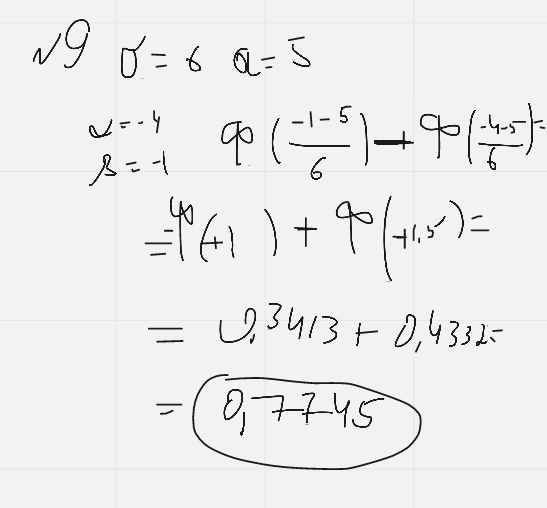 №9 σ = 6 a = 5
α = -4 Φ((-1-5)/6) - Φ((-4-5)/6) =
β = -1
= -Φ(+1) + Φ(+1,5) =
= 0,3413 + 0,4332 =
= 0,7745